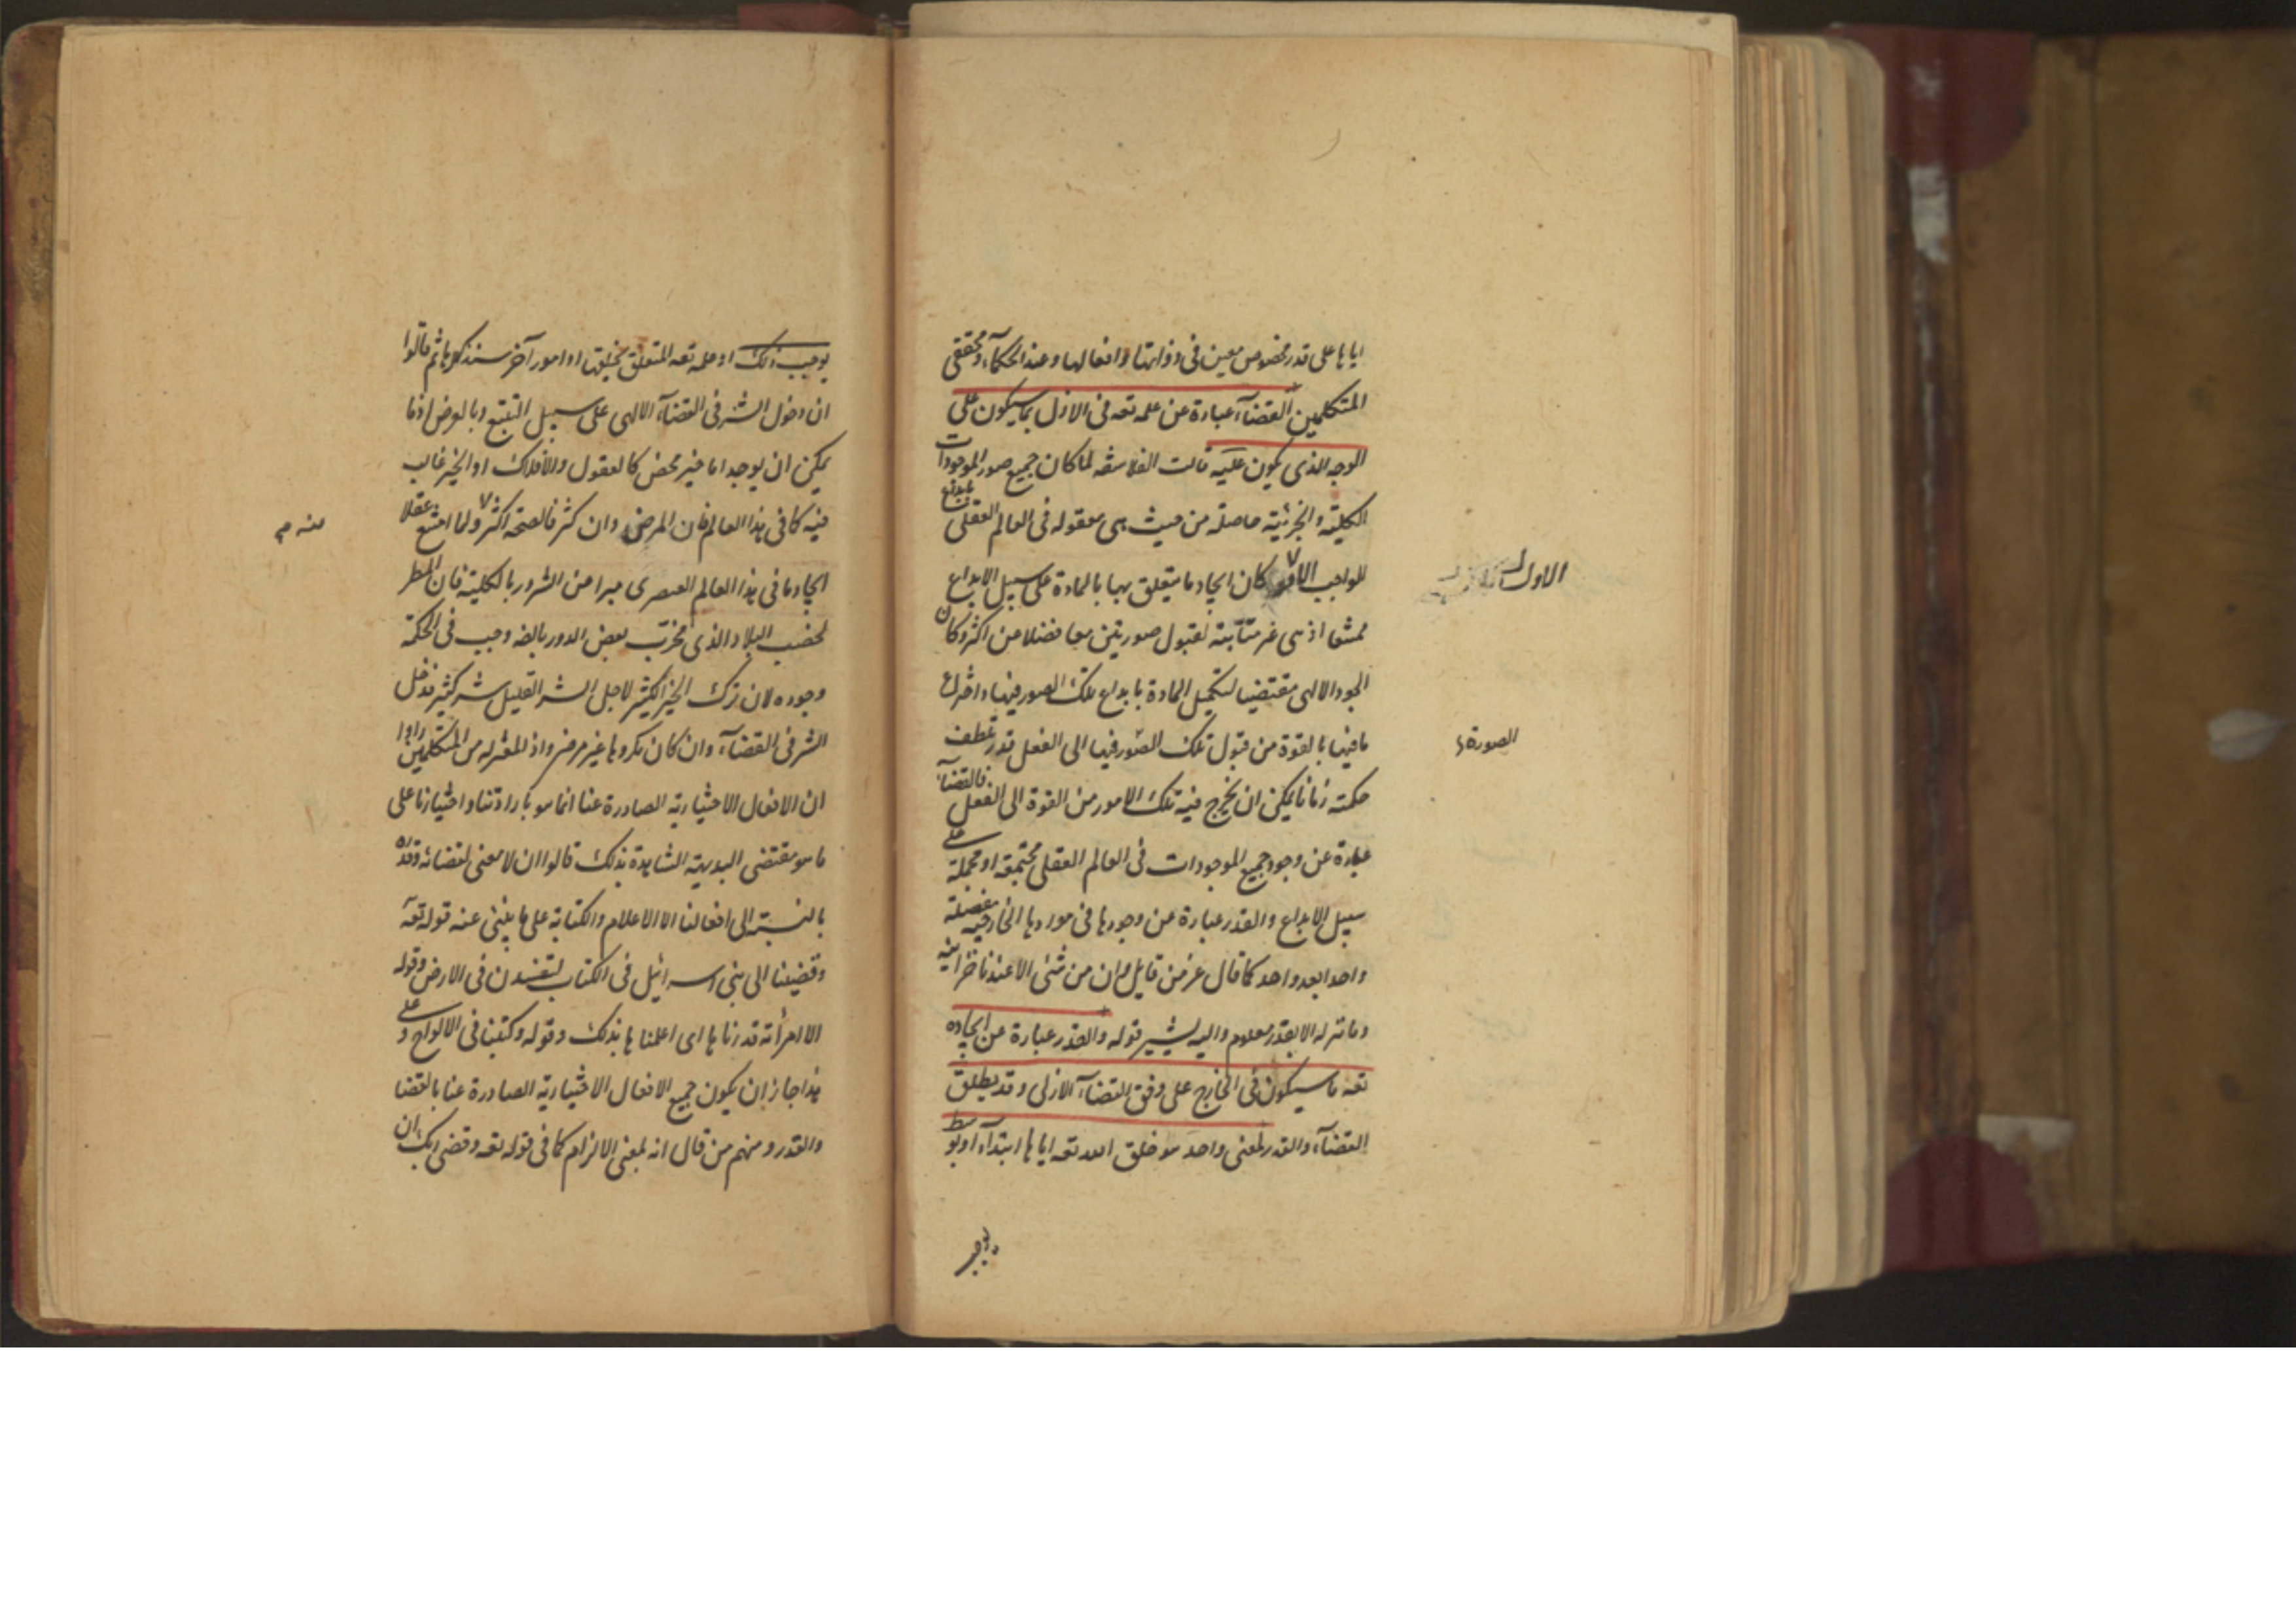 اياها على قدر مخصوص معين فى ذواتها وافعالها وعند الحكمآء ومحققى
المتكلمين القضآء عبارة عن علمه تعه فى الازل بما سيكون على
الوجه الذى يكون عليه قالت الفلاسفه لما كان جميع صور الموجودات
الكلية والجزئية حاصلة من حيث هى معقوله فى العالم العقلى بابداع
للواجب كان ايجاد ما يتعلق بها بالمادة على سبيل الابداع
ممتنعا اذ هى غير متأتية لقبول صورتين معا فضلا من اكثر وكان
الجود الالهى مقتضيا لتكميل المادة بابداع تلك الصور فيها واخراج
ما فيها بالقوة من قبول تلك الصور فيها الى الفعل قدر بلطف
حكمته زمانا يمكن ان يخرج فيه تلك الامور من القوة الى الفعل فالقضآء
عبارة عن وجود جميع الموجودات فى العالم العقلى مجتمعة او مجملة على
سبيل الابداع والقدر عبارة عن وجودها فى موادها الخارجية مفصلة
واحدا بعد واحد كما قال عز من قايل وان من شئى الا عندنا خزائنه
وما ننزله الا بقدر معلوم واليه يشير قوله والقدر عبارة عن ايجاده
تعه ما سيكون فى الخارج على وفق القضآء الازلى وقد يطلق
القضآء والقدر لمعنى واحد هو خلق الله تعه اياها ابتدآء او بوسط
الاول
الصورة
يوجب ذلك او علمه تعه المتعلق بخلقها او امور آخر سنذكرها ثم قالوا
ان دخول الشر فى القضآء الالهى على سبيل التبع وبالعرض اذ ما
يمكن ان يوجد اما خير محض كالعقول والافلاك او الخير غالب
فيه كما فى هذا العالم فان المرض وان كثر فالصحة اكثر ولما امتنع عقلا
ايجاد ما فى هذا العالم العنصرى مبرا من الشرور بالكلية فان المطر
لخصب البلاد الذى يخرب بعض الدور بالضه وجب فى الحكمة
وجوده لان ترك الخير الكثير لاجل الشر القليل شر كثير فدخل
الشر فى القضآء وان كان مكروها غير مرض واذ المعتزله من المتكلمين راوا
ان الافعال الاختيارية الصادرة عنا انما هو بارادتنا واختيارنا على
ما هو مقتضى البديهة الشاهدة بذلك قالوا ان لا معنى لقضائه وقدره
بالنسبة الى افعالنا الا الاعلام والكتابة على ما ينبئ عنه قوله تعه
وقضينا الى بنى اسرائيل فى الكتاب لتفسدن فى الارض وقوله
الا امرأته قدرناها اى اعلمناها بذلك وقوله وكتبنا فى الالواح وعلى
هذا جاز ان يكون جميع الافعال الاختيارية الصادرة عنا بالقضا
والقدر ومنهم من قال انه لمعنى الالزام كما فى قوله تعه وقضى ربك ان
منه